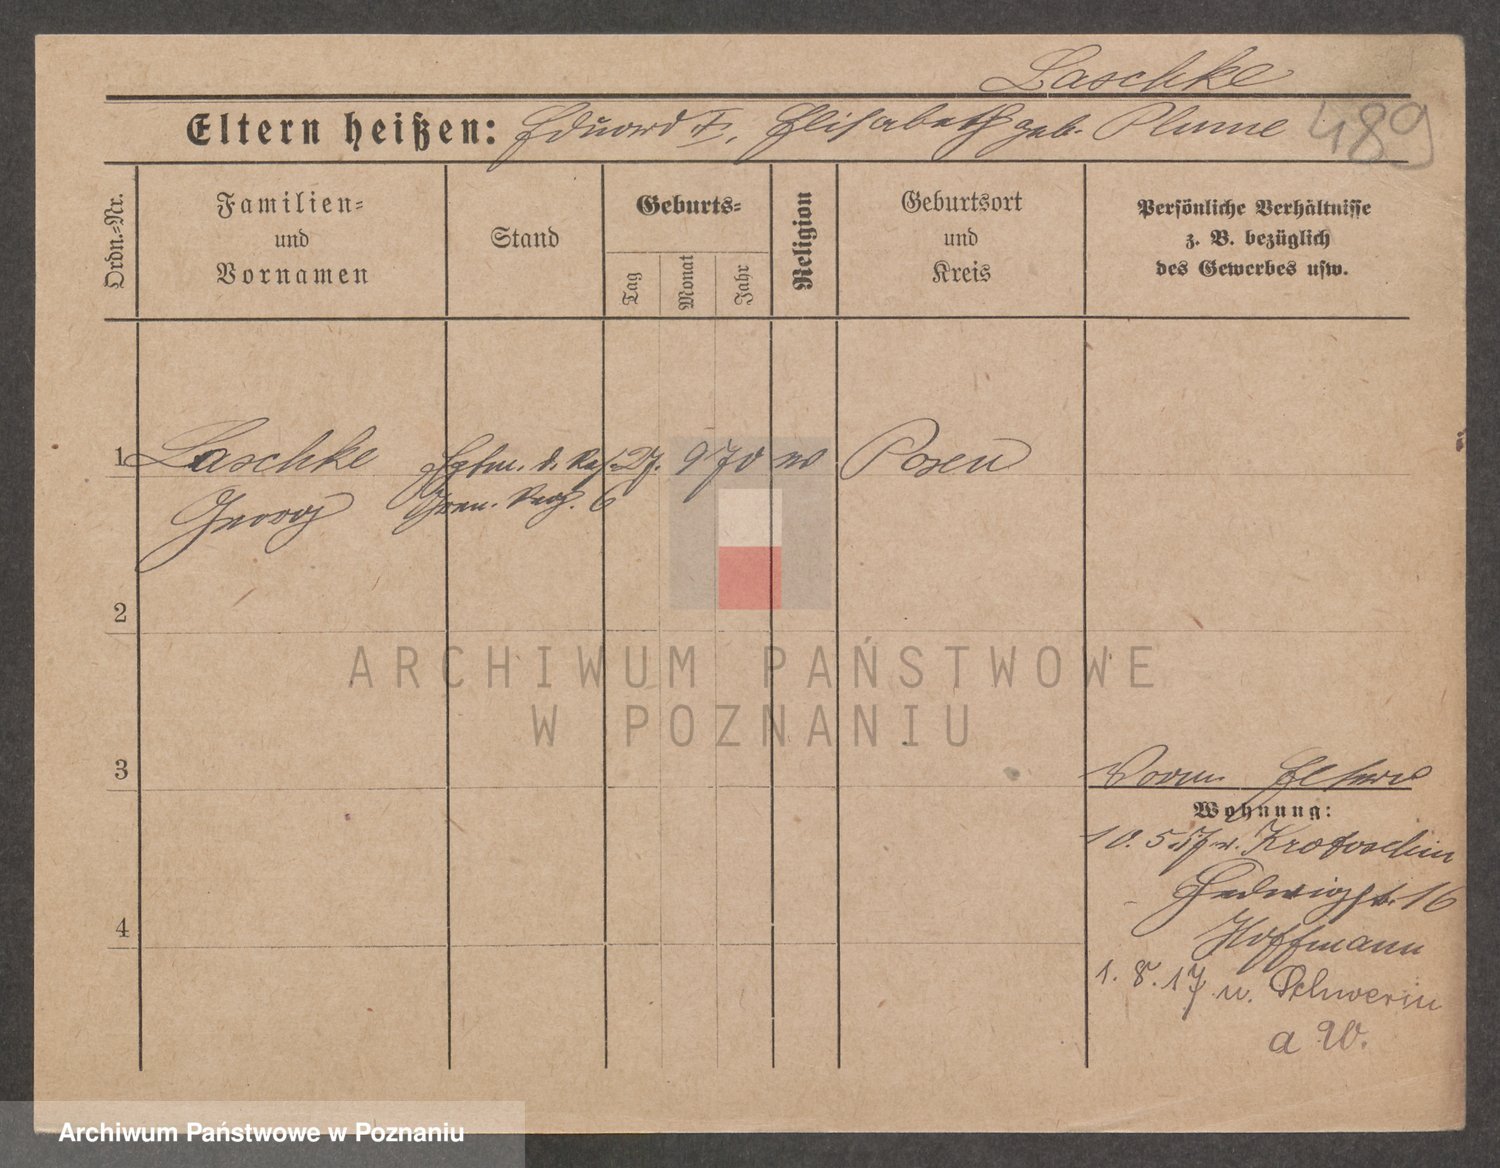 Laschke
489
Eltern heißen: Eduard †, Elisabeth geb. Plume
Ordn.=Nr.
Familien=
und
Vornamen
Stand
Geburts=
Tag
Monat
Jahr
Religion
Geburtsort
und
Kreis
Persönliche Verhältnisse
z. B. bezüglich
des Gewerbes usw.
1 Laschke Hptm. d. Res. 27. 9 70 Posen
Georg Gren. Reg. 6
2
ARCHIWUM PAŃSTWOWE
W POZNANIU
3
Eltern
Wohnung:
10. 5. 17 v. Krotoschin
Hedwigst. 16
Hoffmann
4
1. 8. 17 n. Schwerin
a W.
Archiwum Państwowe w Poznaniu